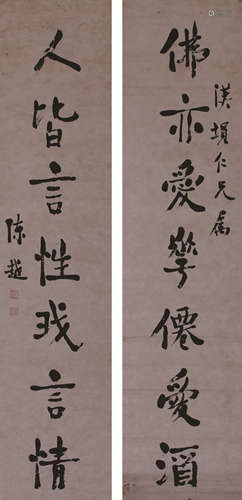 漢塤仁兄屬
佛亦愛僊愛酒
人皆言性我言情
陳越